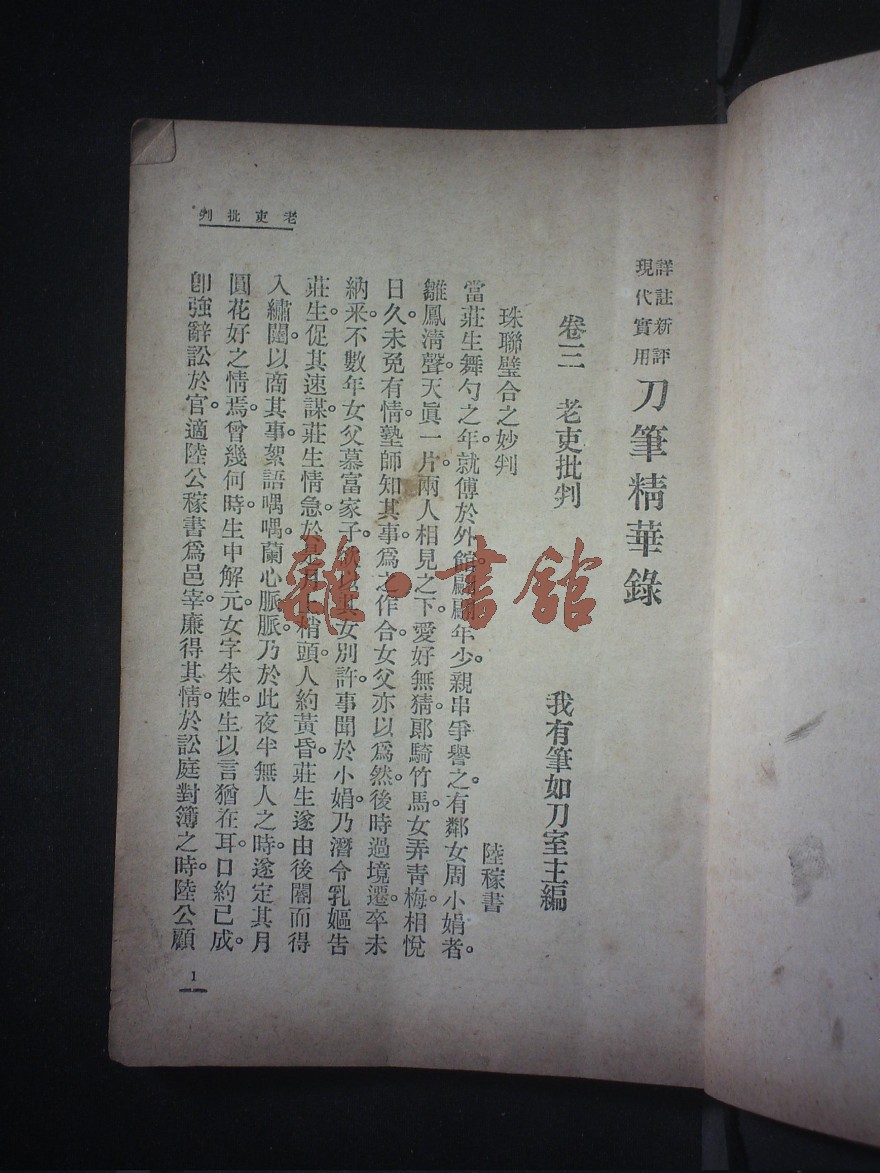 詳註新評
現代實用
刀筆精華錄
卷三 老吏批判 我有筆如刀室主編
珠聯璧合之妙判 陸稼書
當莊生舞勺之年。就傅於外館。翩翩年少。親串爭譽之。有鄰女周小娟者。
雛鳳清聲。天眞一片。兩人相見之下。愛好無猜。郎騎竹馬。女弄青梅。相悅
日久。未免有情。塾師知其事。爲之作合。女父亦以爲然。後時過境遷。卒未
納采。不數年。女父慕富家子。欲以其女別許。事聞於小娟。乃潛令乳嫗告
莊生。促其速謀。莊生情急。於是月上梢頭。人約黃昏。莊生遂由後闥而得
入繡闥。以商其事。絮語喁喁。蘭心脈脈。乃於此夜半無人之時。遂定其月
圓花好之情焉。曾幾何時。生中解元。女字朱姓。生以言猶在耳。口約已成。
卽強辭訟於官。適陸公稼書爲邑宰。廉得其情。於訟庭對簿之時。陸公顧
老吏批判
1
雜·書館